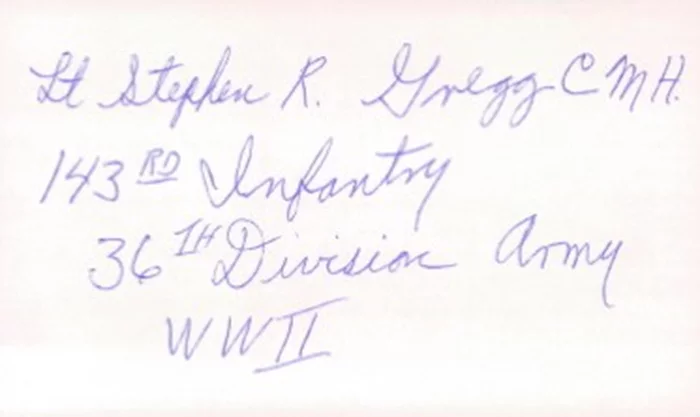 Lt Stephen R. Gregg CMH.
143RD Infantry
36TH Division Army
WWII